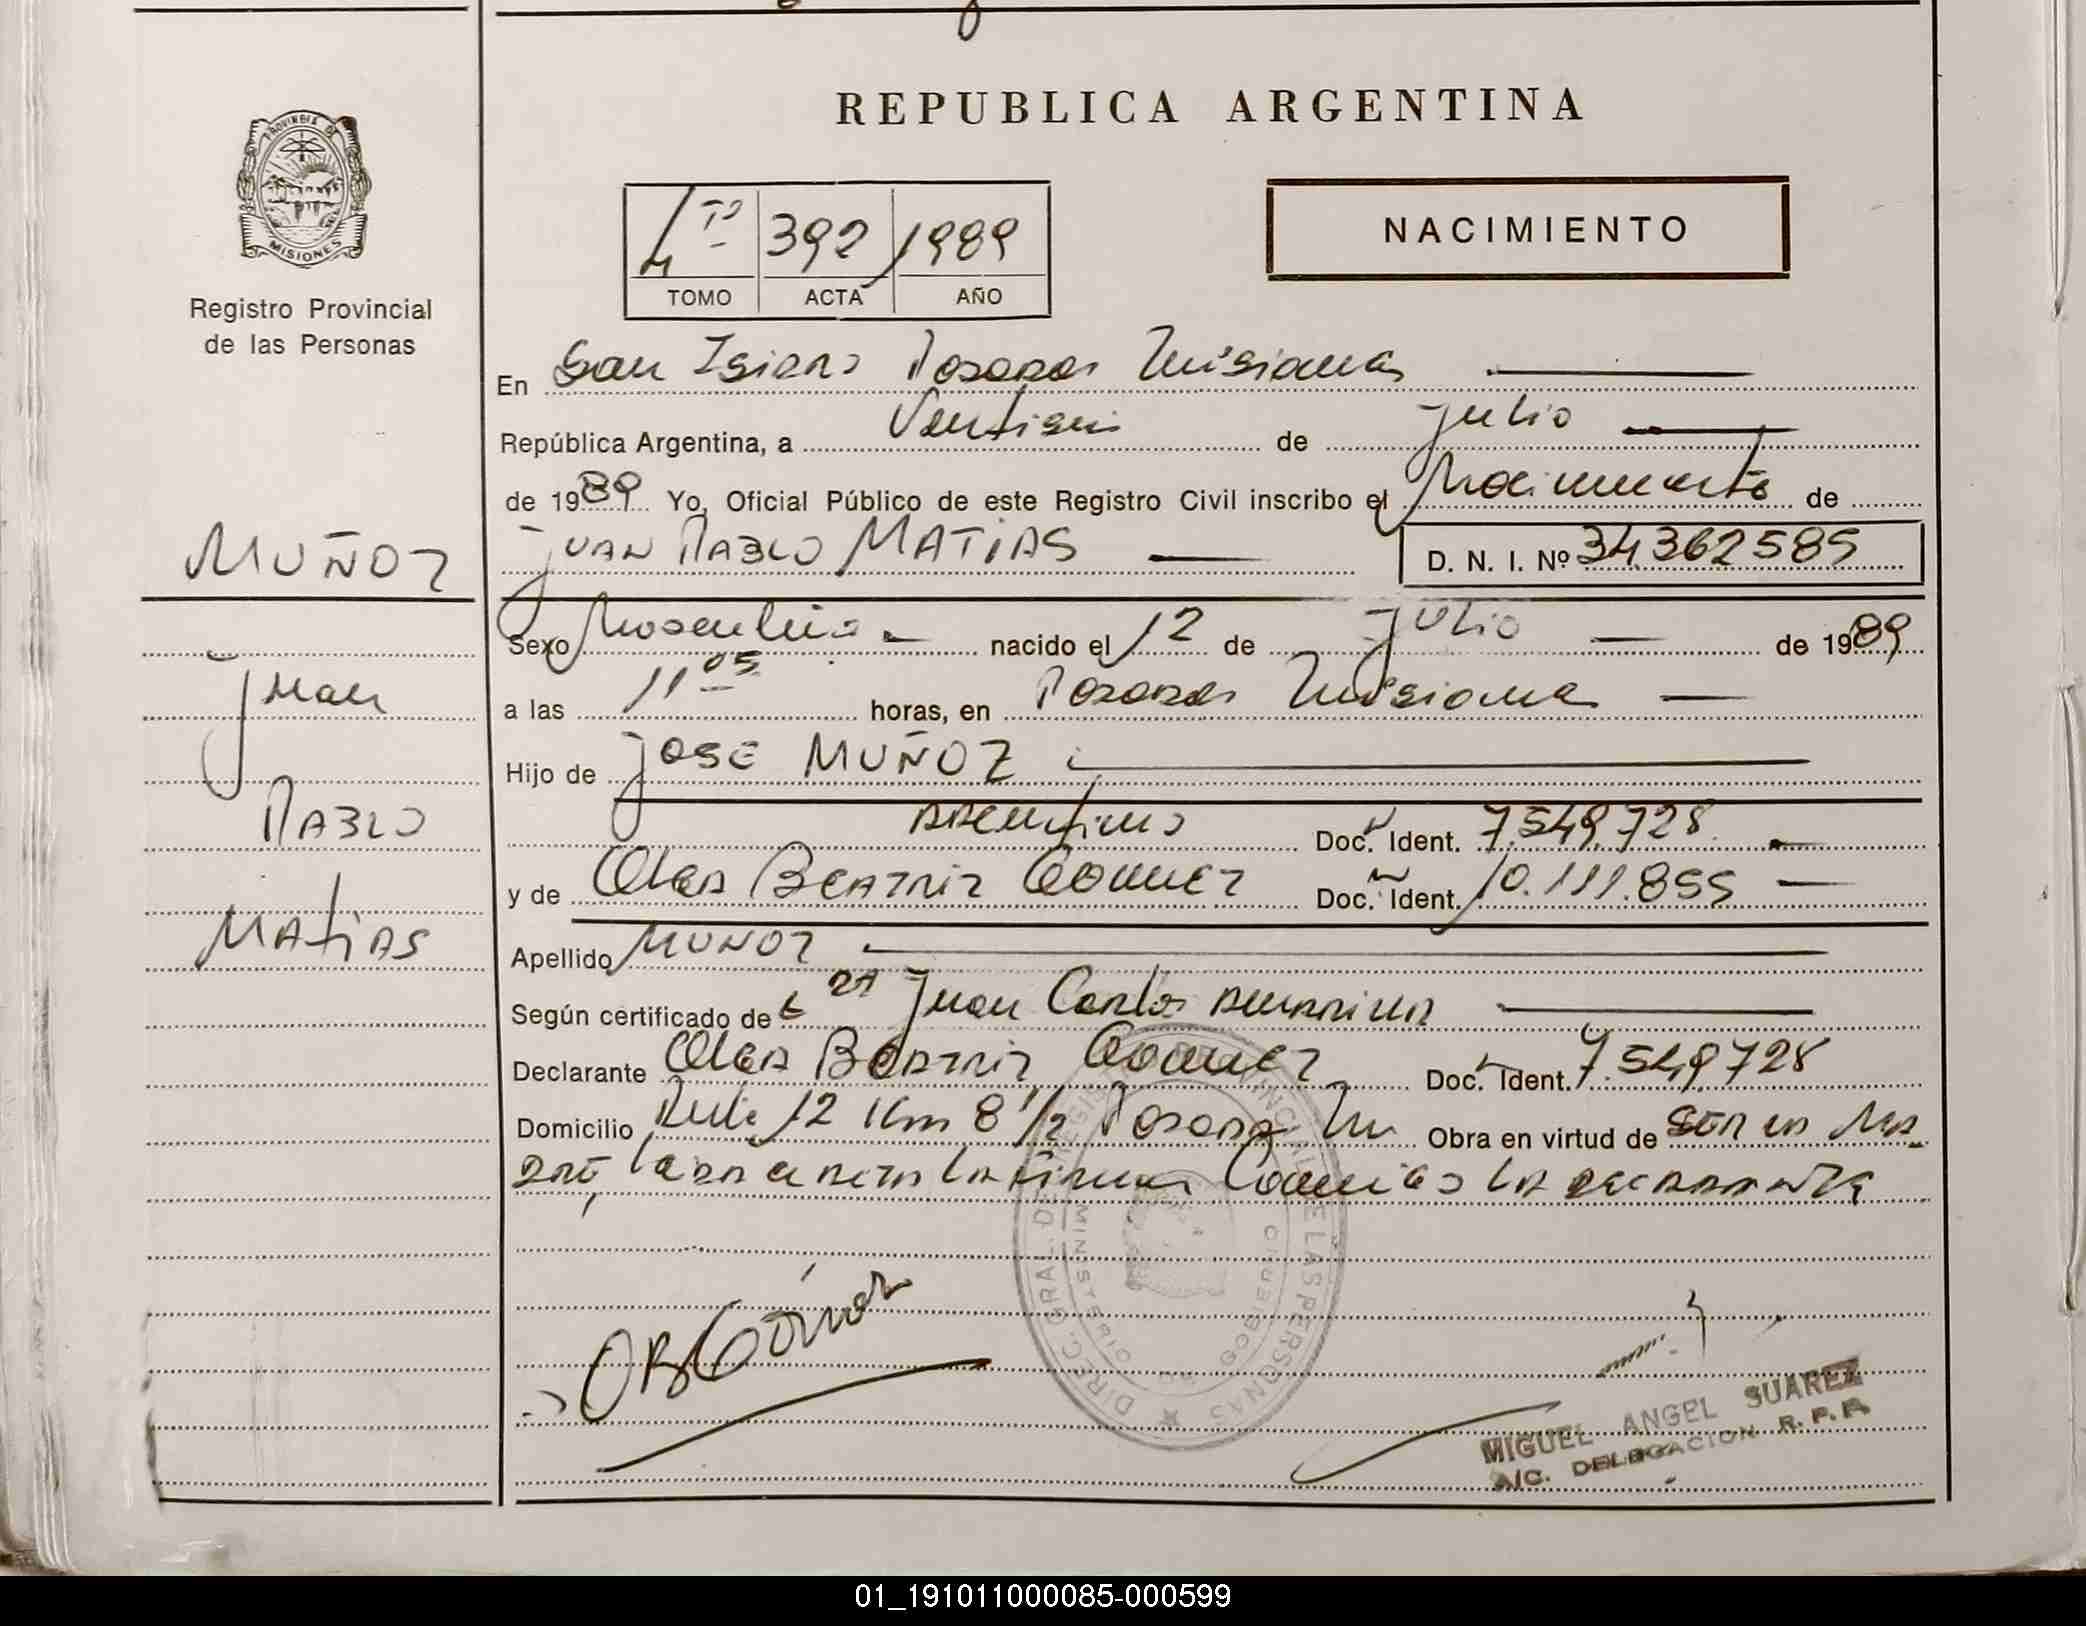 REPUBLICA ARGENTINA
PROVINCIA DE
MISIONES
Registro Provincial
de las Personas
392 1989
TOMO ACTA AÑO
NACIMIENTO
En San Isidro Posadas Misiones
República Argentina, a Ventiseis de Julio
de 1989 Yo, Oficial Público de este Registro Civil inscribo el Nacimiento de
MUÑOZ
JUAN PABLO MATIAS D. N. I. Nº 34362585
Sexo Masculino nacido el 12 de Julio de 1989
Juan
a las 11 05 horas, en Posadas Misiones
Hijo de JOSE MUÑOZ
PABLO
Argentino Doc. Ident. 7.549.728
y de Olga Beatriz Gomez Doc. Ident. 10.111.855
MATIAS
Apellido MUÑOZ
Según certificado de Juan Carlos
Declarante Olga Beatriz Gomez Doc. Ident. 7.549728
Domicilio Ruta 12 Km 8 1/2 Posadas Obra en virtud de ser la Ma-
dre, la declarante
OBGómez
DIREC. GRAL. DE REGISTRO PROVINCIAL DE LAS PERSONAS
MINISTERIO DE GOBIERNO
MIGUEL ANGEL SUAREZ
A/C. DELEGACION R. P. P.
01_191011000085-000599